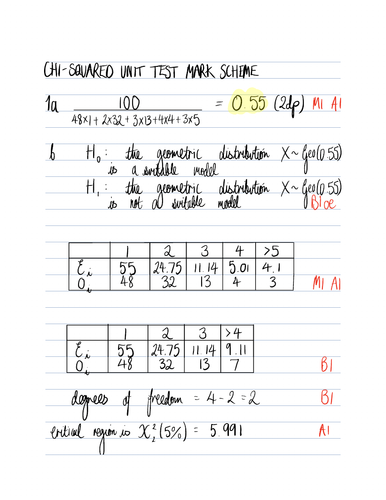 CHI-SQUARED UNIT TEST MARK SCHEME
1a 100 / 48×1 + 2×32 + 3×13 + 4×4 + 3×5 = 0.55 (2dp) M1 A1
b H₀ : the geometric distribution X ~ Geo(0.55)
is a suitable model
H₁ : the geometric distribution X ~ Geo(0.55)
is not a suitable model B1oe
1 2 3 4 >5
Eᵢ 55 24.75 11.14 5.01 4.1
Oᵢ 48 32 13 4 3 M1 A1
1 2 3 >4
Eᵢ 55 24.75 11.14 9.11
Oᵢ 48 32 13 7 B1
degrees of freedom = 4-2 = 2 B1
critical region is X²₂ (5%) = 5.991 A1